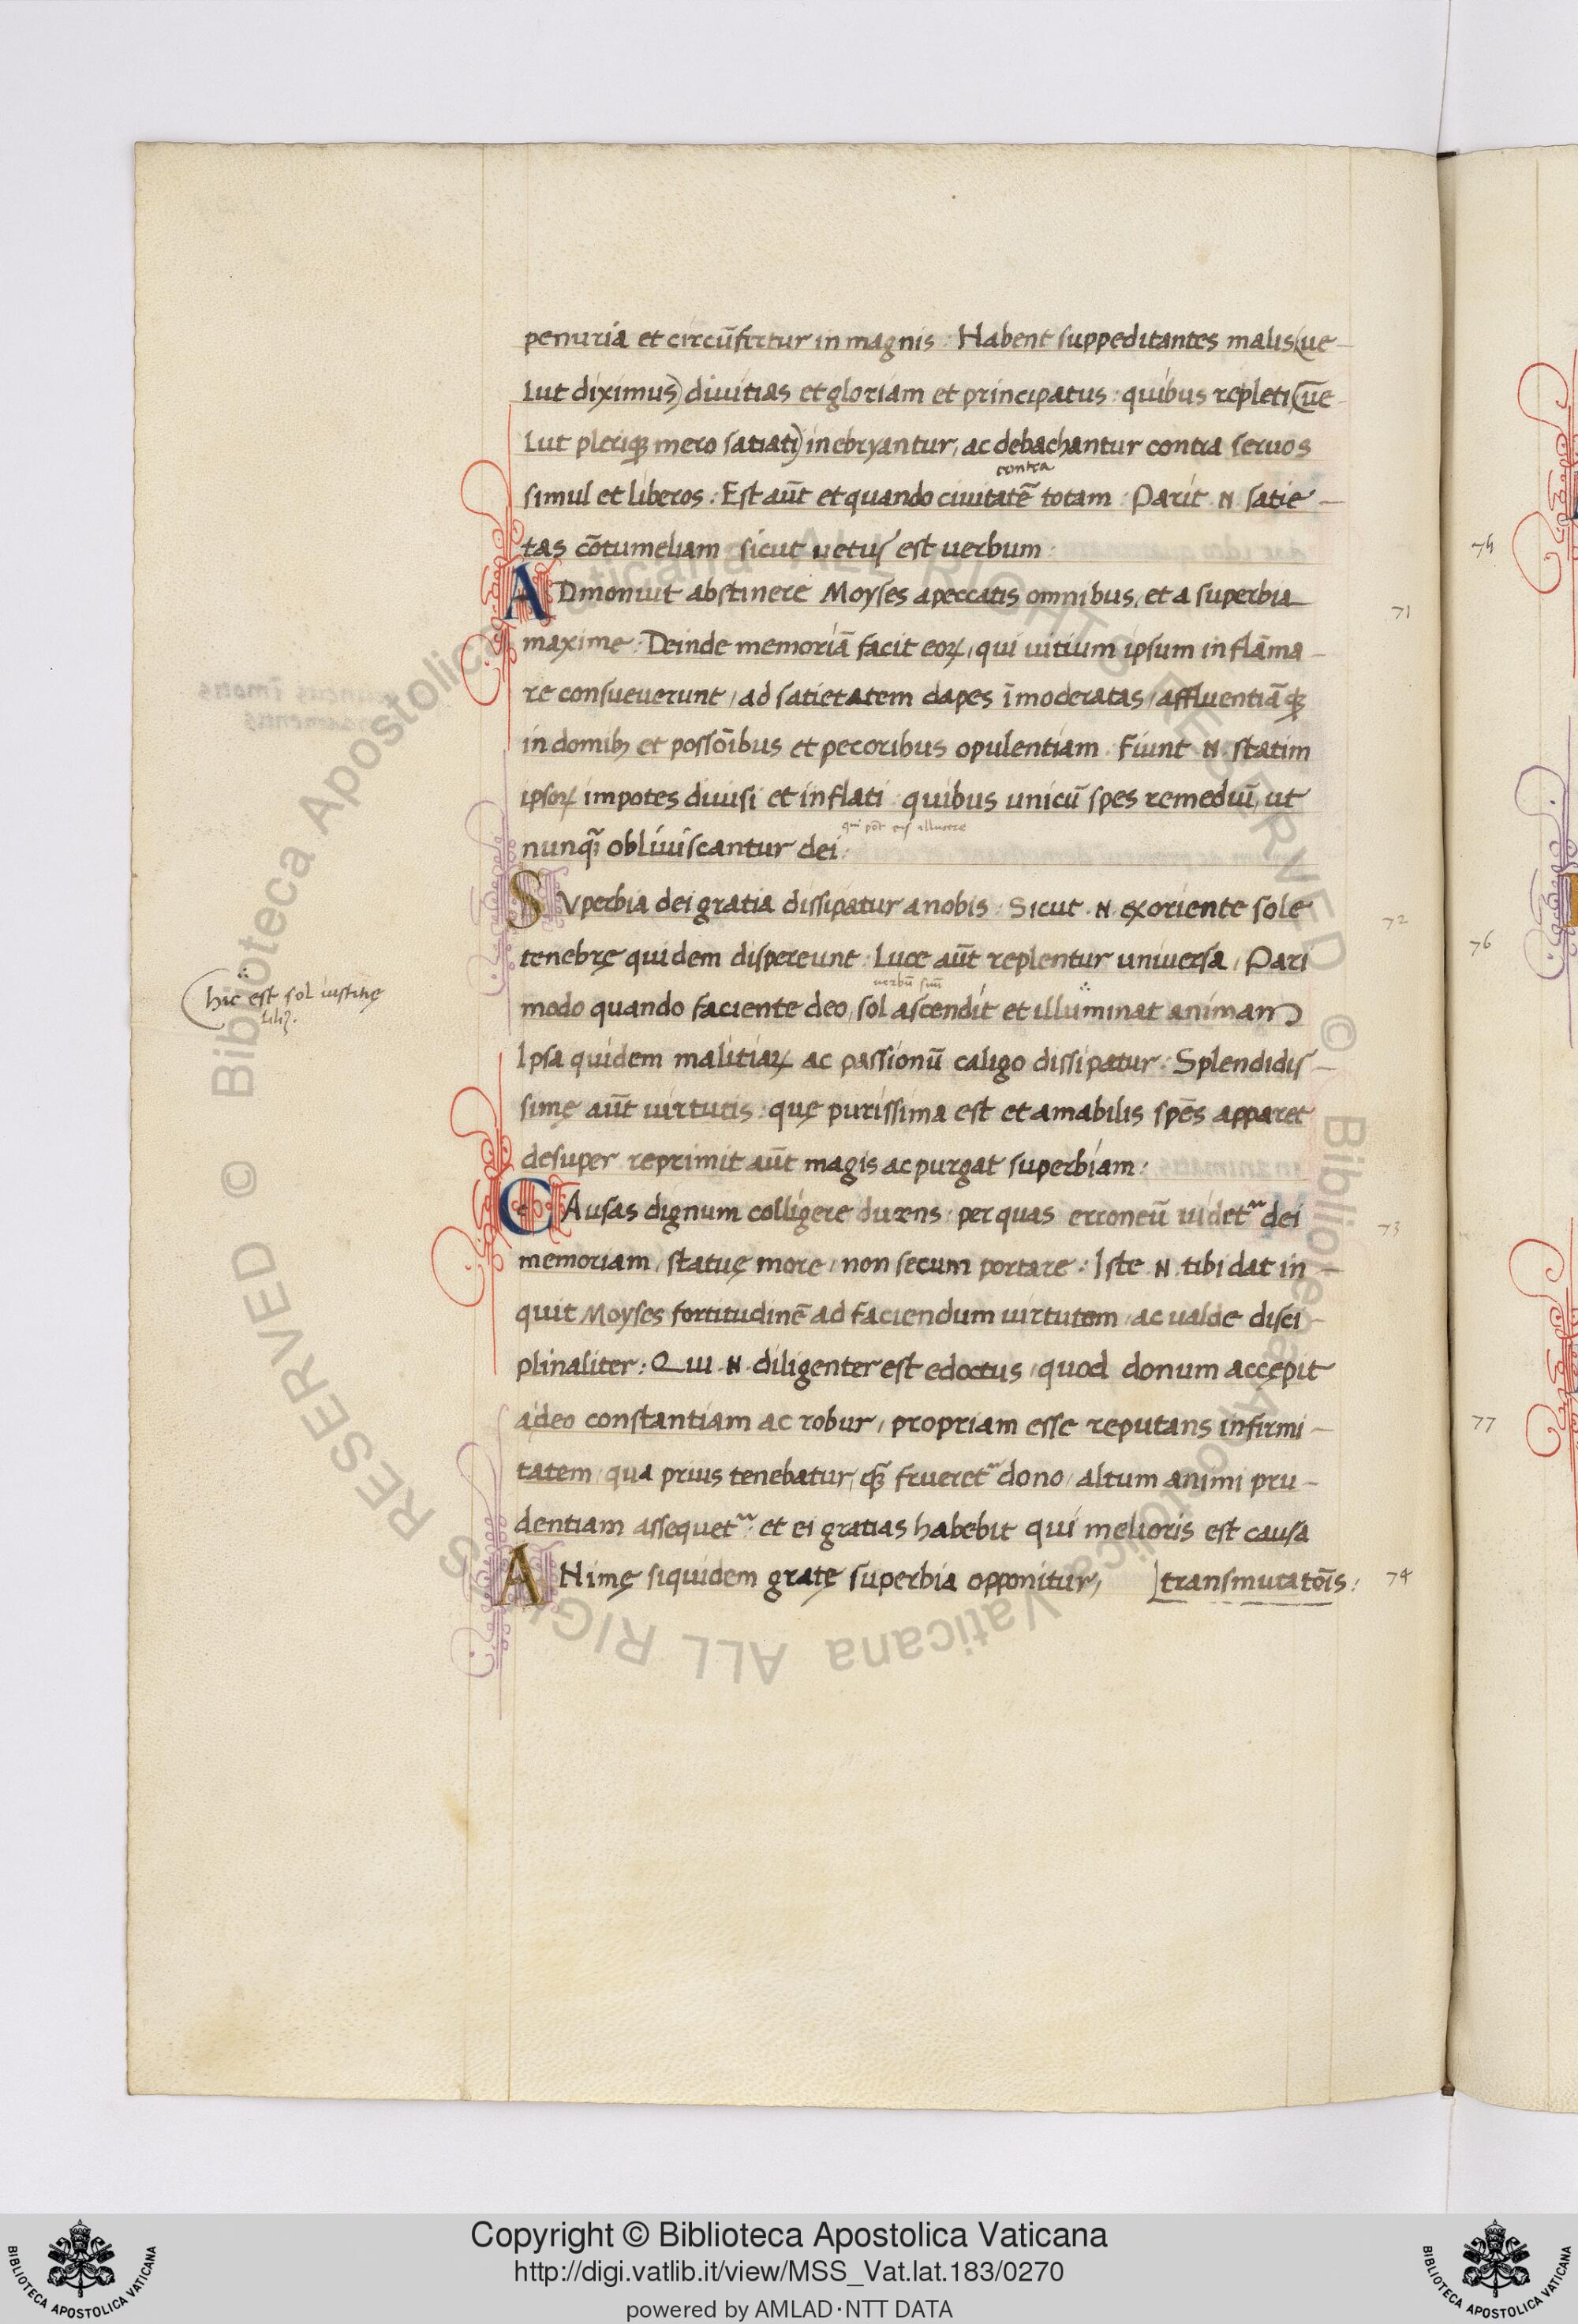 penuria et circū̄fertur in magnis : Habent suppeditantes malis (ue-
lut diximus) diuitias et gloriam et principatus : quibus repleti (ue-
lut pleriqꝫ mero satiati) inebryantur, ac debachantur contra seruos
contra
simul et liberos : Est aūt et quando ciuitatē totam : Parit .N. satie-
tas cōtumeliam sicut uetus est uerbum :
ADmoniuit abstinere Moyses a peccatis omnibus, et a superbia
71
maxime : Deinde memoriā facit eoꝝ, qui uitium ipsum inflāma-
re consueuerunt, ad satietatem dapes īmoderatas, affluentiāqꝫ
in domibꝫ et possōibus et pecoribus opulentiam. Fiunt .N. statim
ipsoꝝ impotes diuisi et inflati quibus unicū spes remediū, ut
qui pōt eos illucere
nunqꝫ obliuiscantur dei :
SVperbia dei gratia dissipatur a nobis : Sicut .N. exoriente sole
72
tenebrę quidem dispereunt : Luce aūt replentur uniuersa, Pari
uerbū suū
modo quando faciente deo, sol ascendit et illuminat animam
hic est sol iustitię
Ipsa quidem malitiaꝝ ac passionū caligo dissipatur : Splendidis-
simę aūt uirtutis : quę purissima est et amabilis spēs apparet
desuper reprimit aūt magis ac purgat superbiam :
CAusas dignum colligere ducens : per quas erroneū uidetᵘʳ dei
73
memoriam, statuę more, non secum portare : Iste .N. tibi dat in-
quit Moyses fortitudinē ad faciendum uirtutem, ac ualde disci-
plinaliter : Qui .N. diligenter est edoctus, quod donum accepit
a deo constantiam ac robur, propriam esse reputans infirmi-
tatem, qua prius tenebatur, qꝫ frueretᵘʳ dono, altum animi pru-
dentiam assequetᵘʳ : et ei gratias habebit qui melioris est causa
transmutatōis :
ANimę siquidem gratę superbia opponitur,
74
75
76
77
Copyright © Biblioteca Apostolica Vaticana
http://digi.vatlib.it/view/MSS_Vat.lat.183/0270
powered by AMLAD·NTT DATA
BIBLIOTECA APOSTOLICA VATICANA
BIBLIOTECA APOSTOLICA VATICANA
© Biblioteca Apostolica Vaticana ALL RIGHTS RESERVED © Biblioteca Apostolica Vaticana ALL RIGHTS RESERVED